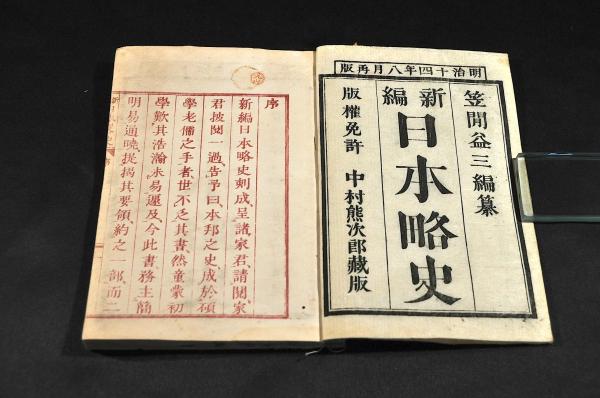 明治十四年八月再版
笠間益三編纂
新編
日本略史
版權免許 中村熊次郎藏版
序
新編日本略史刻成呈諸家君請閱家
君披閱一過告予曰本邦之史成於碩
學老儒之手者世不乏其書然童蒙初
學歎其浩瀚未易遽及今此書務主簡
明易通曉提揭其要領約之一部而二